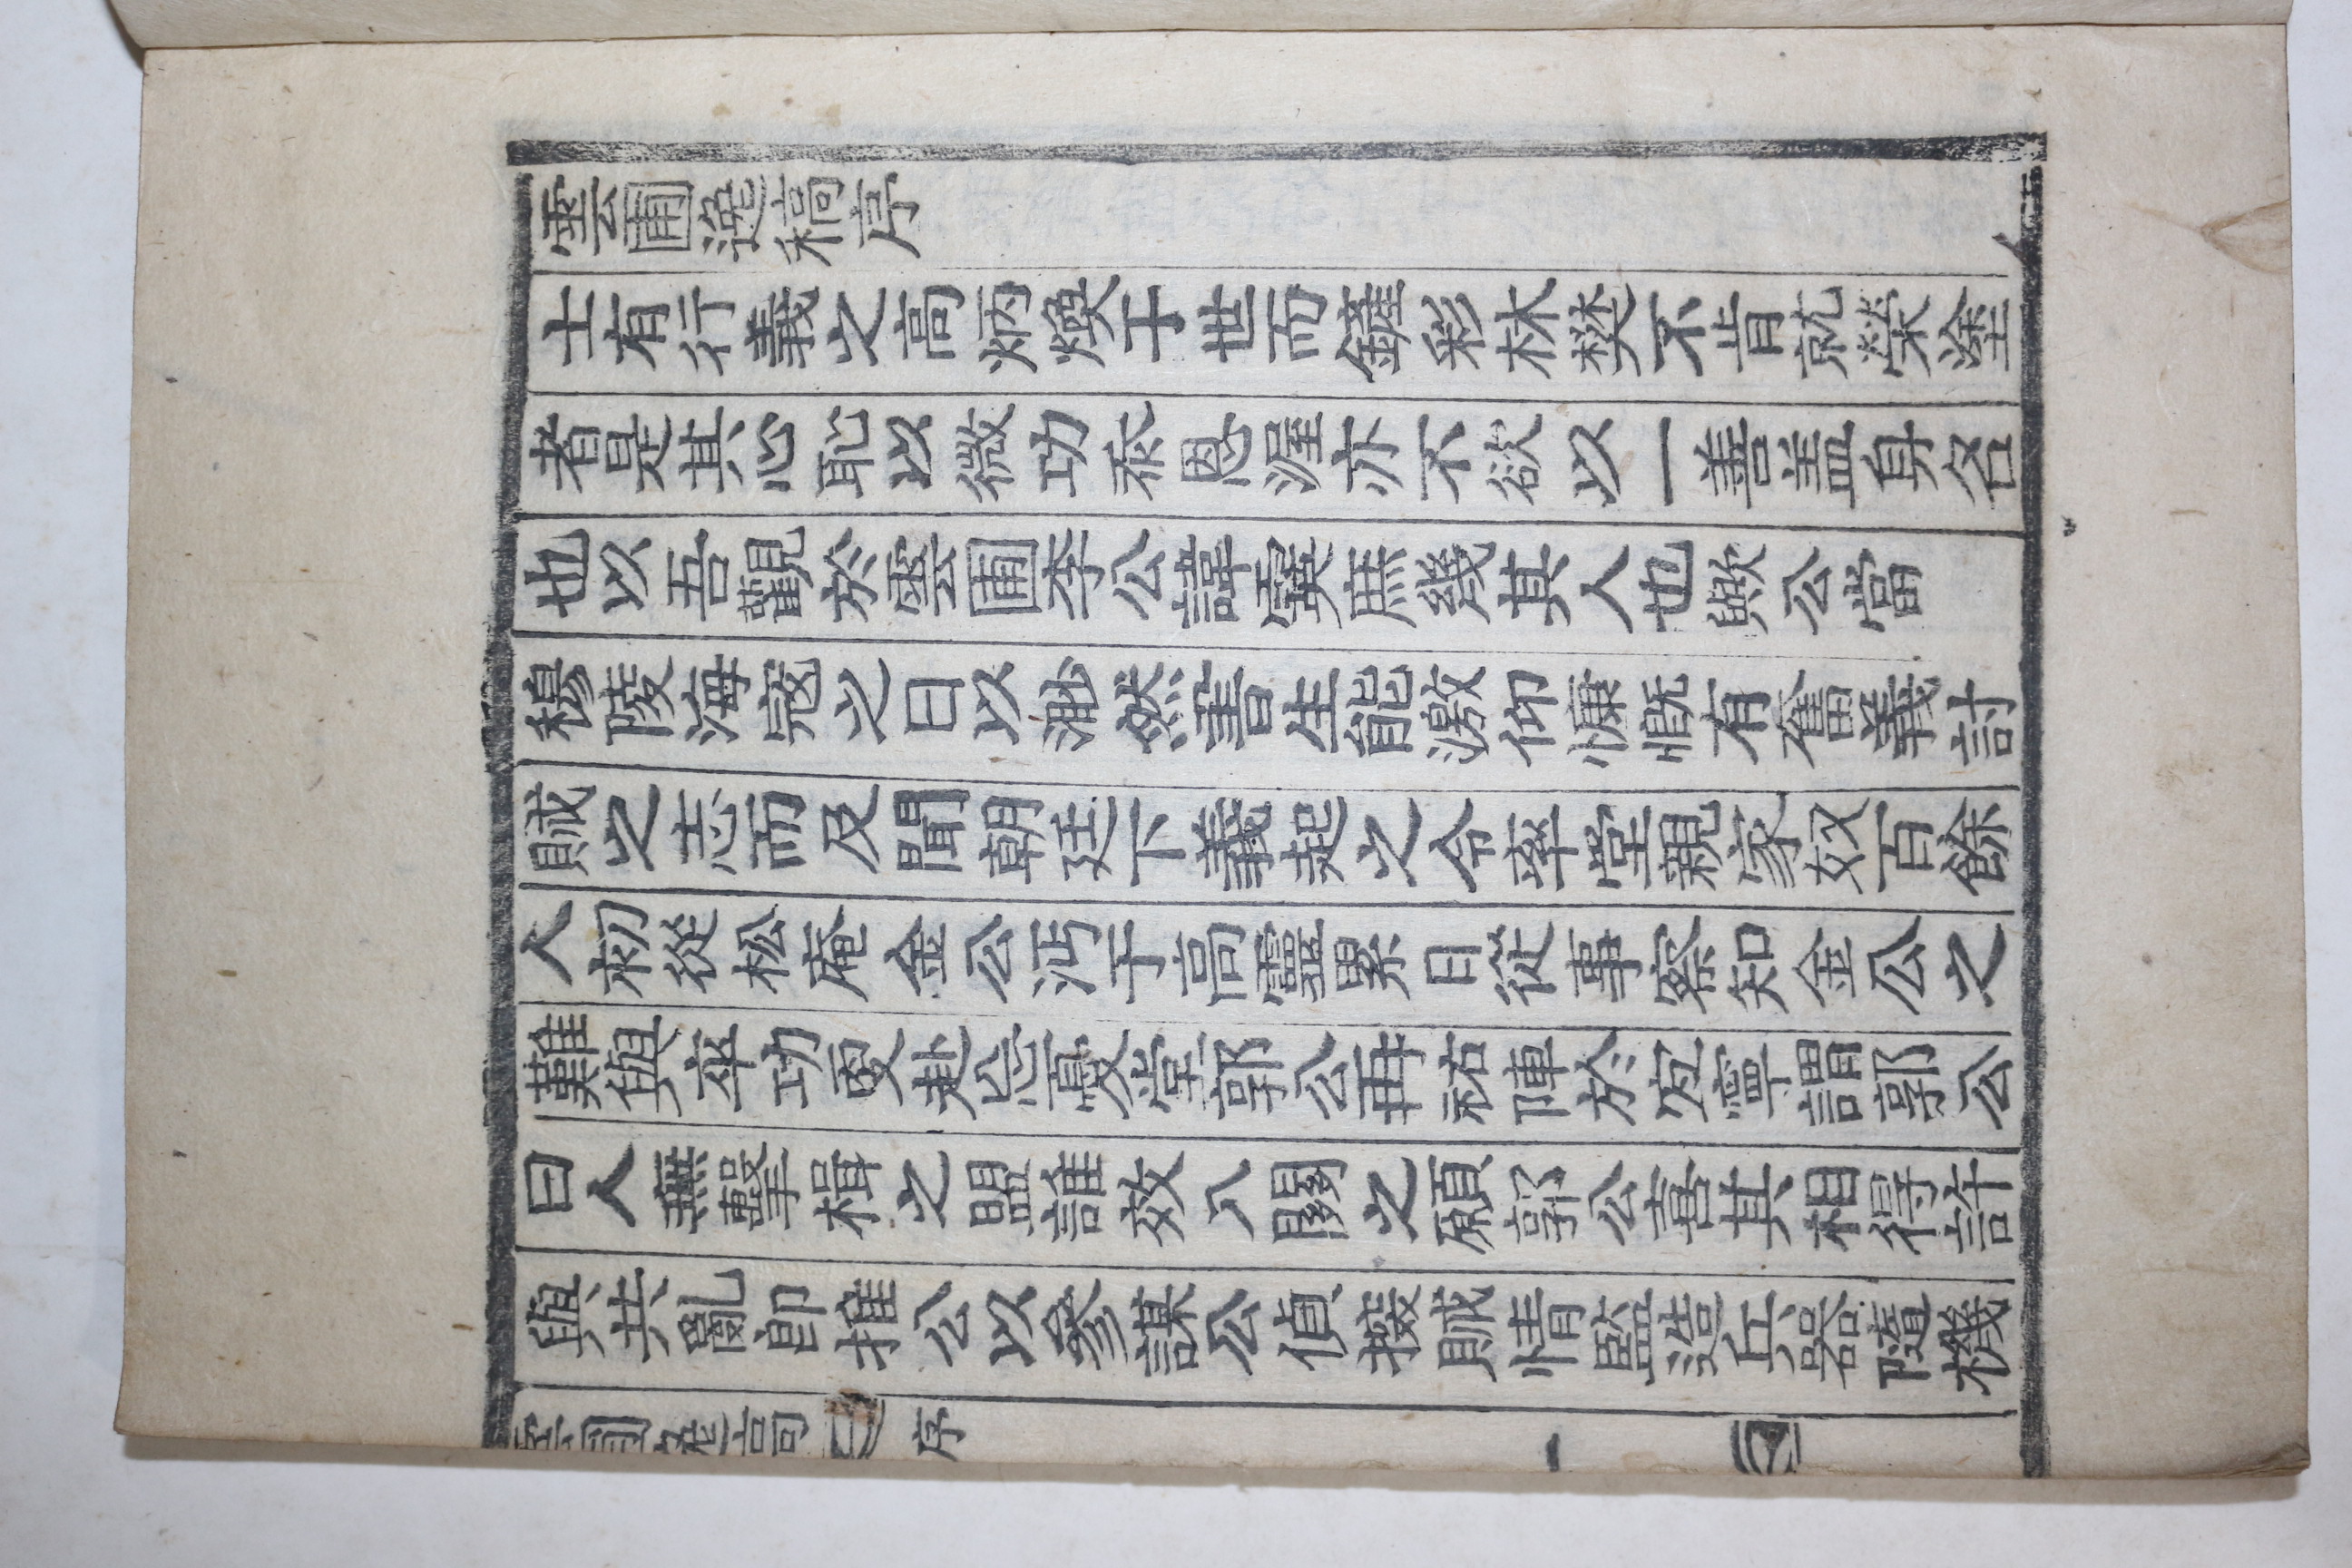 雲圃逸稿序
士有行義之高炳煥于世而鏟彩林樊不肯就榮塗
者是其心恥以微功忝恩渥亦不欲以一善盖身名
也以吾觀於雲圃李公諱霙庶幾其人也歟公當
穆陵海寇之日以渺然書生能激仰慷慨有奮義討
賊之志而及聞朝廷下義起之令率堂親家奴百餘
人初從松庵金公沔于高靈累日從事察知金公之
難與卒功更赴忘憂堂郭公再祐陣於宜寧謂郭公
曰人無擊楫之盟誰效入關之願郭公喜其相得許
與共亂卽推公以參謀公偵探賊情監造兵器隨機
雲圃逸稿 序 一